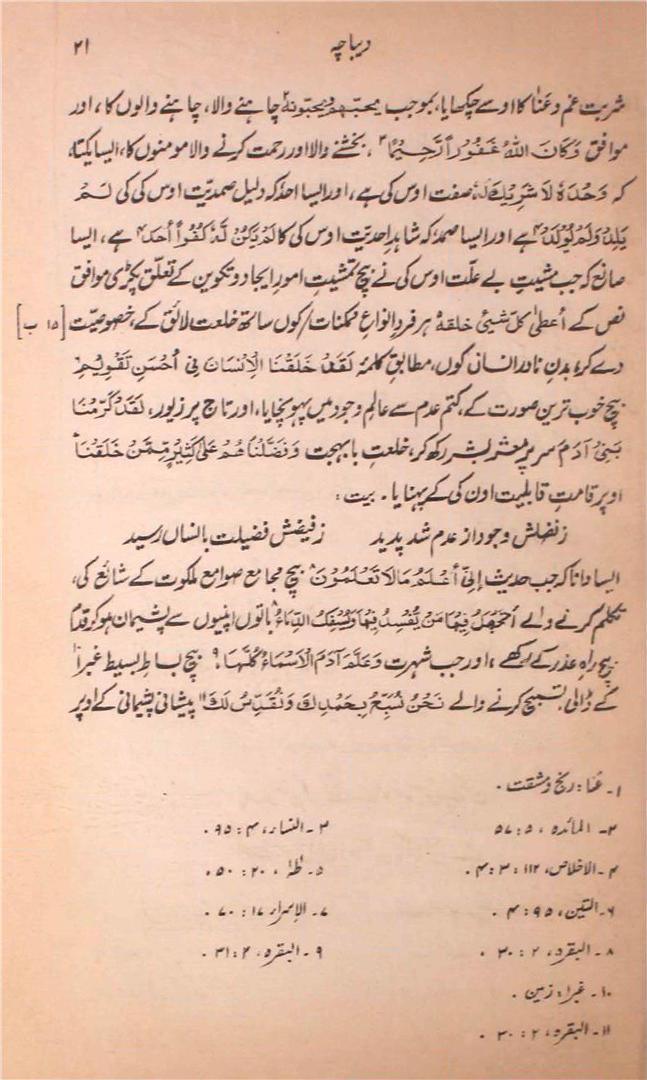 دیباچہ ۲۱
شربت غم و عَنا کا اوسے چکھایا، بموجب یحبّہم و یحبّونہ۲ چاہنے والا، چاہنے والوں کا، اور
موافق وَكَانَ اللهُ غَفُوْراً رَّحِيْمًا۳، بخشنے والا اور رحمت کرنے والا مومنوں کا، ایسا یکتا،
کہ وَحْدَهٗ لَا شَرِيْكَ لَهٗ، صفت اوس کی ہے، اور ایسا احد کہ دلیل صمدیّت اوس کی کی لَمْ
يَلِدْ وَلَمْ يُوْلَدْ۴ ہے اور ایسا صمد، کہ شاہدِ احدیّت اوس کی کا لَمْ يَكُنْ لَّهٗ كُفُواً أحد۴ ہے، ایسا
صانع کہ جب مشیتِ بے علّت اوس کی نے بیچ تمشیتِ امورِ ایجاد و تکوین کے تعلّق پکڑی موافق
نص کے أعطیٰ کلّ شیئی خلقہٗ۵ ہر فردِ انواعِ ممکنات/کوں ساتھ خلعت لائق کے، خصوصیّت [۱۵ ب]
دے کر، بدنِ نادر انساں کوں، مطابقِ کلمۂ لَقَدْ خَلَقْنَا الْاِنْسَانَ فِی اَحْسَنِ تَقْوِیْمٍ۶
بیچ خوب ترین صورت کے، کتم عدم سے عالمِ وجود میں پہونچایا، اور تاج پر زیور، لَقَدْ كَرَّمْنَا
بَنِیْ آدَمَ سر پر معشرِ بشر رکھ کر، خلعتِ با بہجت وَفَضَّلْنَاهُمْ عَلٰی كَثِيْرٍ مِّمَّنْ خَلَقْنَا۷
اوپر قامتِ قابلیت اون کی کے پہنایا۔ بیت :
ز فضلش وجود از عدم شد پدید ز فیضش فضیلت بانساں رسید
ایسا دانا کہ جب حدیث اِنِّیْ اَعْلَمُ مَا لَا تَعْلَمُوْنَ۸ بیچ مجامع صوامع ملکوت کے شائع کی،
تکلّم کرنے والے اَتَجْعَلُ فِيْهَا مَنْ يُّفْسِدُ فِيْهَا وَيَسْفِكُ الدِّمَاءَ۸ باتوں اپنیوں سے پشیمان ہو کر قدم
بیچ راہِ عذر کے رکھے، اور جب شہرت وَعَلَّمَ آدَمَ الْاَسْمَاءَ كُلَّهَا۹، بیچ بساطِ بسیط غبرا۱۰
کے ڈالی، تسبیح کرنے والے نَحْنُ نُسَبِّحُ بِحَمْدِكَ وَنُقَدِّسُ لَكَ۱۱ پیشانی پشیمانی کے اوپر
۱۔ عَنا : رنج و مشقت ۔
۲۔ المائدہ ، ۵ : ۵۷ ۳۔ النساء ، ۴ : ۹۵ ۔
۴۔ الاخلاص، ۱۱۲ : ۳ : ۴ ۔ ۵۔ طٰہٰ ، ۲۰ : ۵۰ ۔
۶۔ التین، ۹۵ : ۴ ۔ ۷۔ الإسراء ۱۷ : ۷۰ ۔
۸۔ البقرہ، ۲ : ۳۰ ۔ ۹۔ البقرہ، ۲ : ۳۱ ۔
۱۰۔ غبرا : زمین ۔
۱۱۔ البقرہ، ۲ : ۳۰ ۔